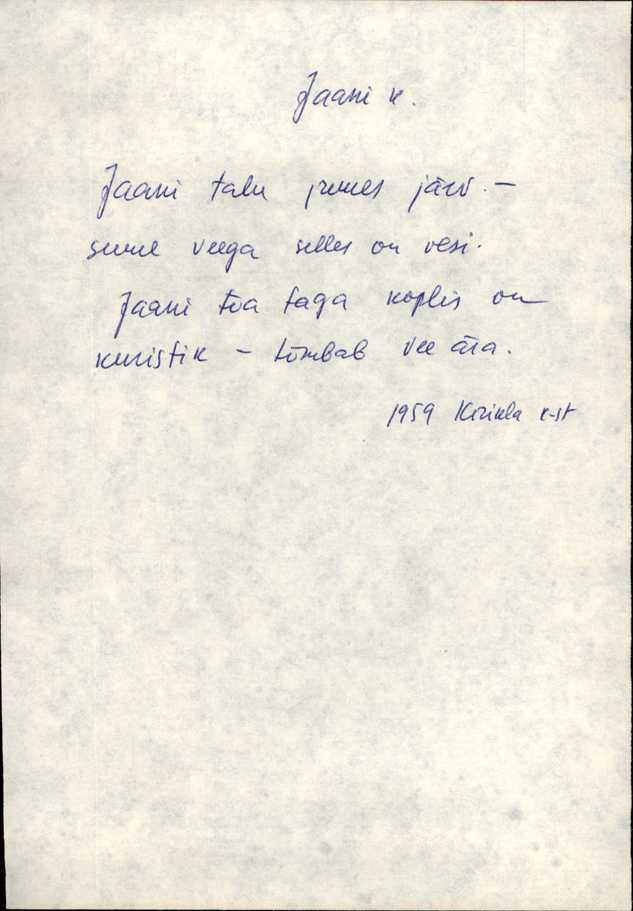 Jaani k.
Jaani talu juures järv. –
suure veega selles on vesi.
Jaani toa taga koplis on
kuristik – tõmbab vee ära.
1959 Kirikla k-st